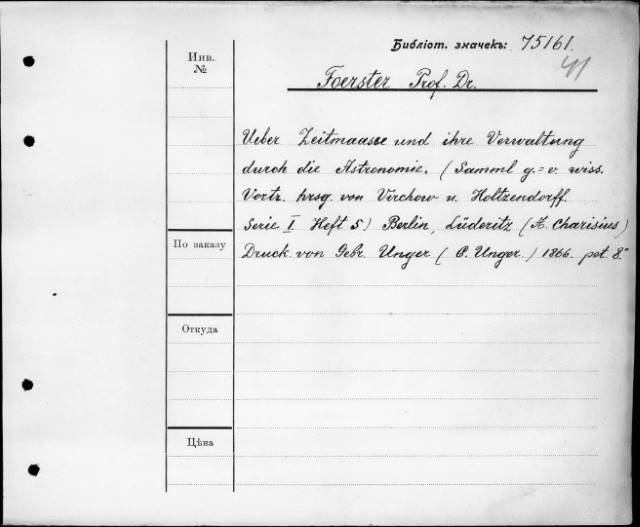 Библіот. значекъ: 75161.
41
Инв. №
Foerster Prof. Dr.
Ueber Zeitmaasse und ihre Verwaltung
durch die Astronomie. (Samml g.=v. wiss.
Vortr. hrsg. von Virchow u. Holtzendorff.
Serie I. Heft 5) Berlin, Lüderitz (A. Charisius)
По заказу
Druck von Gebr. Unger (C. Unger.) 1866. pet. 8.°
Откуда
Цѣна